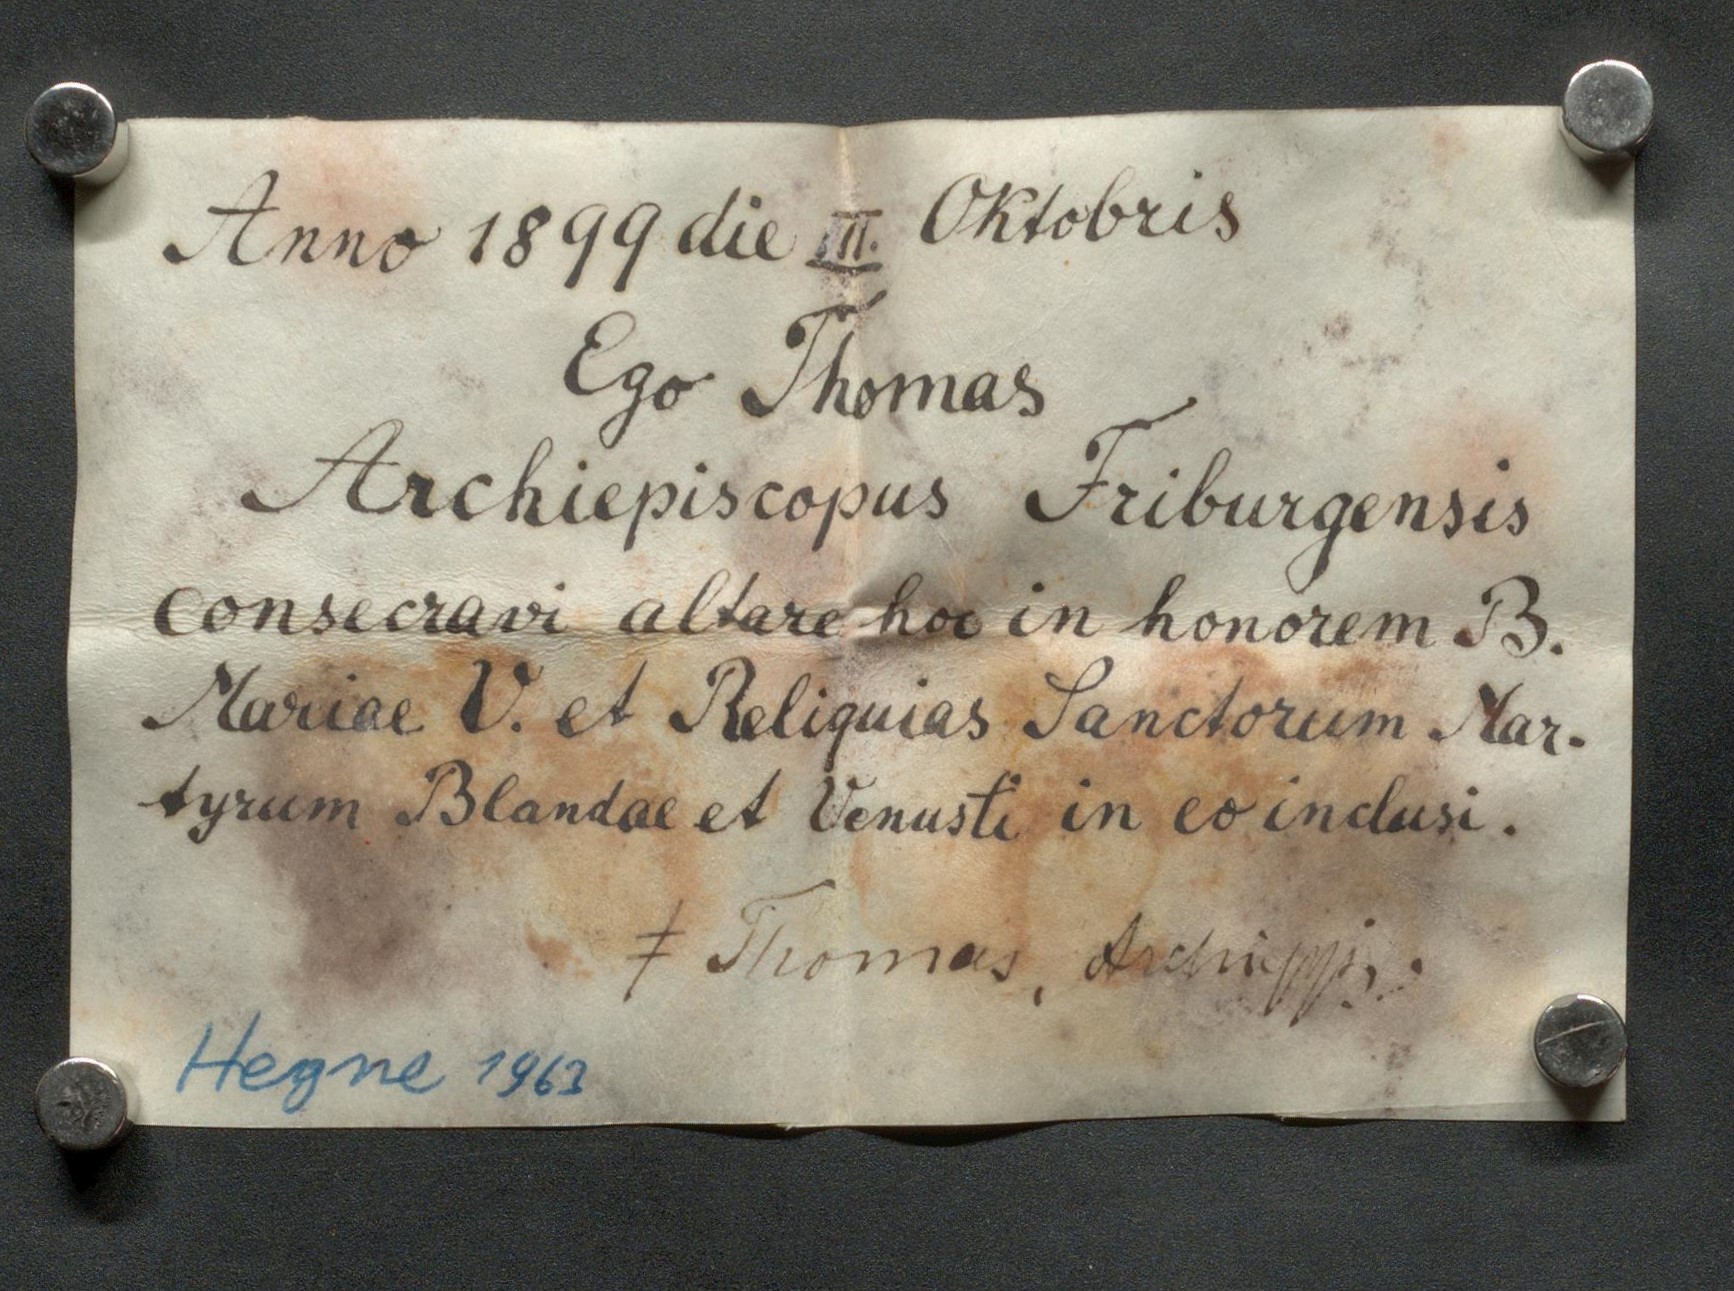 Anno 1899 die III. Oktobris
Ego Thomas
Archiepiscopus Friburgensis
consecravi altare hoc in honorem B.
Mariae V. et Reliquias Sanctorum Mar-
tyrum Blandae et Venusti in eo inclusi.
‡ Thomas,
Hegne 1963